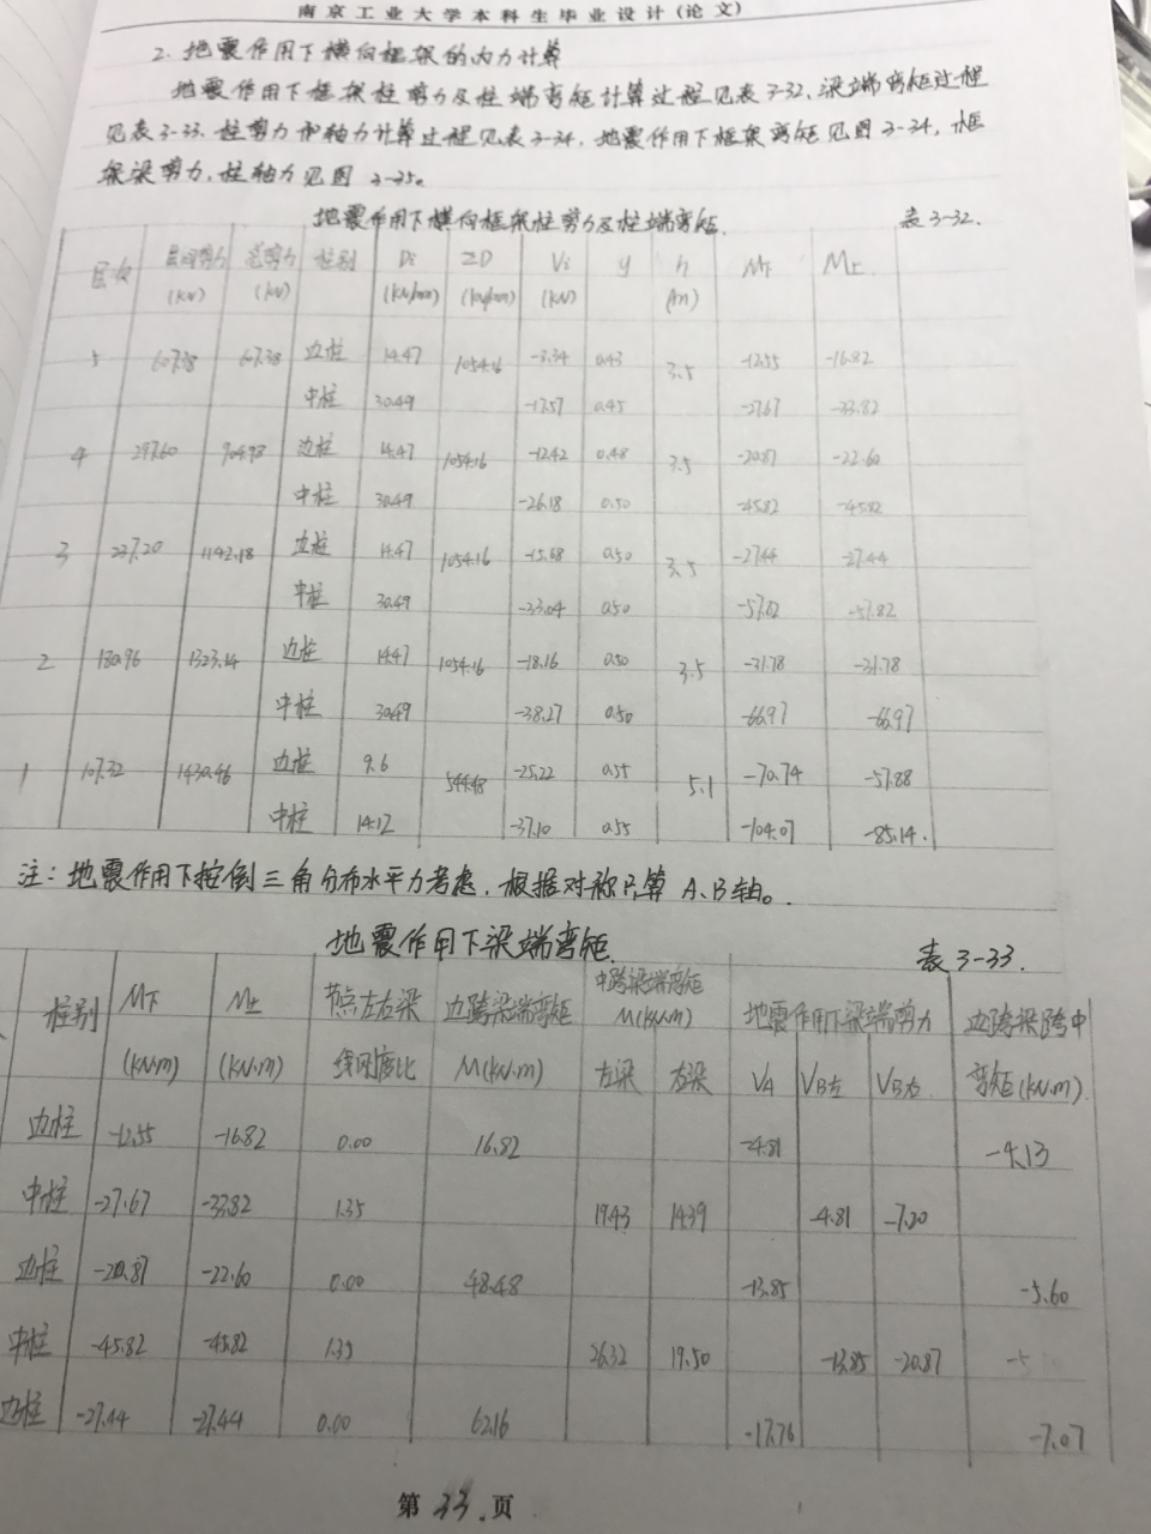 南京工业大学本科生毕业设计(论文)
2. 地震作用下横向框架的内力计算
地震作用下框架柱剪力及柱端弯矩计算过程见表3-32、梁端弯矩过程
见表3-33. 柱剪力和轴力计算过程见表3-34, 地震作用下框架弯矩见图3-24, 框
架梁剪力,柱轴力见图 3-25。
地震作用下横向框架柱剪力及柱端弯矩. 表3-32.
层次 层间剪力 总剪力 柱别 Di ΣD Vi y h M下 M上
(kN) (kN) (kN/mm) (kN/mm) (kN) (m)
5 607.38 607.38 边柱 14.47 1054.16 -8.34 0.43 3.5 -12.55 -16.82
中柱 30.49 -17.57 0.45 -27.67 -33.82
4 297.60 904.98 边柱 14.47 1054.16 -12.42 0.48 3.5 -20.87 -22.60
中柱 30.49 -26.18 0.50 -45.82 -45.82
3 237.20 1142.18 边柱 14.47 1054.16 -15.68 0.50 3.5 -27.44 -27.44
中柱 30.49 -33.04 0.50 -57.82 -57.82
2 180.96 1323.14 边柱 14.47 1054.16 -18.16 0.50 3.5 -31.78 -31.78
中柱 30.49 -38.27 0.50 -66.97 -66.97
1 107.32 1430.46 边柱 9.6 544.48 -25.22 0.55 5.1 -70.74 -57.88
中柱 14.12 -37.10 0.55 -104.07 -85.14.
注: 地震作用下按倒三角分布水平力考虑. 根据对称只算 A、B轴。
地震作用下梁端弯矩. 表3-33.
柱别 M下 M上 节点左右梁 边跨梁端弯矩 中跨梁端弯矩 地震作用下梁端剪力 边跨梁跨中
M(kN.m)
(kN.m) (kN.m) 线刚度比 M(kN.m) 左梁 右梁 VA VB左 VB右 弯矩(kN.m)
边柱 -12.55 -16.82 0.00 16.82 -4.81 -4.13
中柱 -27.67 -33.82 1.35 19.43 14.39 -4.81 -7.20
边柱 -20.87 -22.60 0.00 48.48 -13.85 -5.60
中柱 -45.82 -45.82 1.35 26.32 19.50 -13.85 -20.87
边柱 -27.44 -27.44 0.00 62.16 -17.76 -7.07
第 33. 页